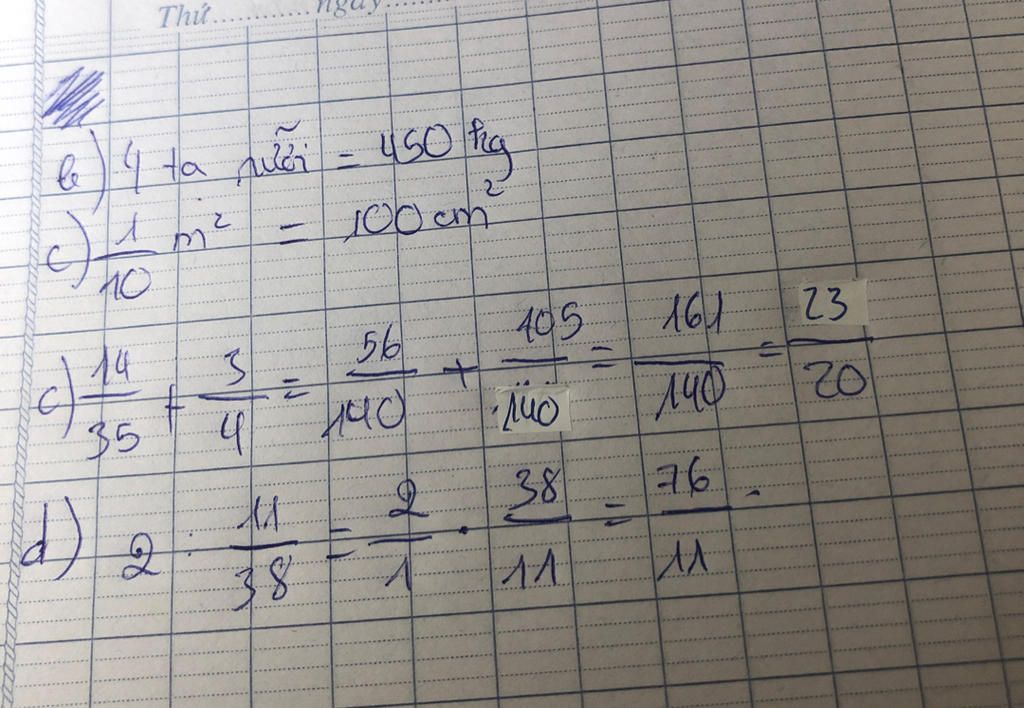 Thứ............ngày........
b) 4 tạ rưỡi = 450 kg
c) 1/10 m² = 100 cm²
c) 14/35 + 3/4 = 56/140 + 105/140 = 161/140 = 23/20
d) 2 : 11/38 = 2/1 . 38/11 = 76/11 .